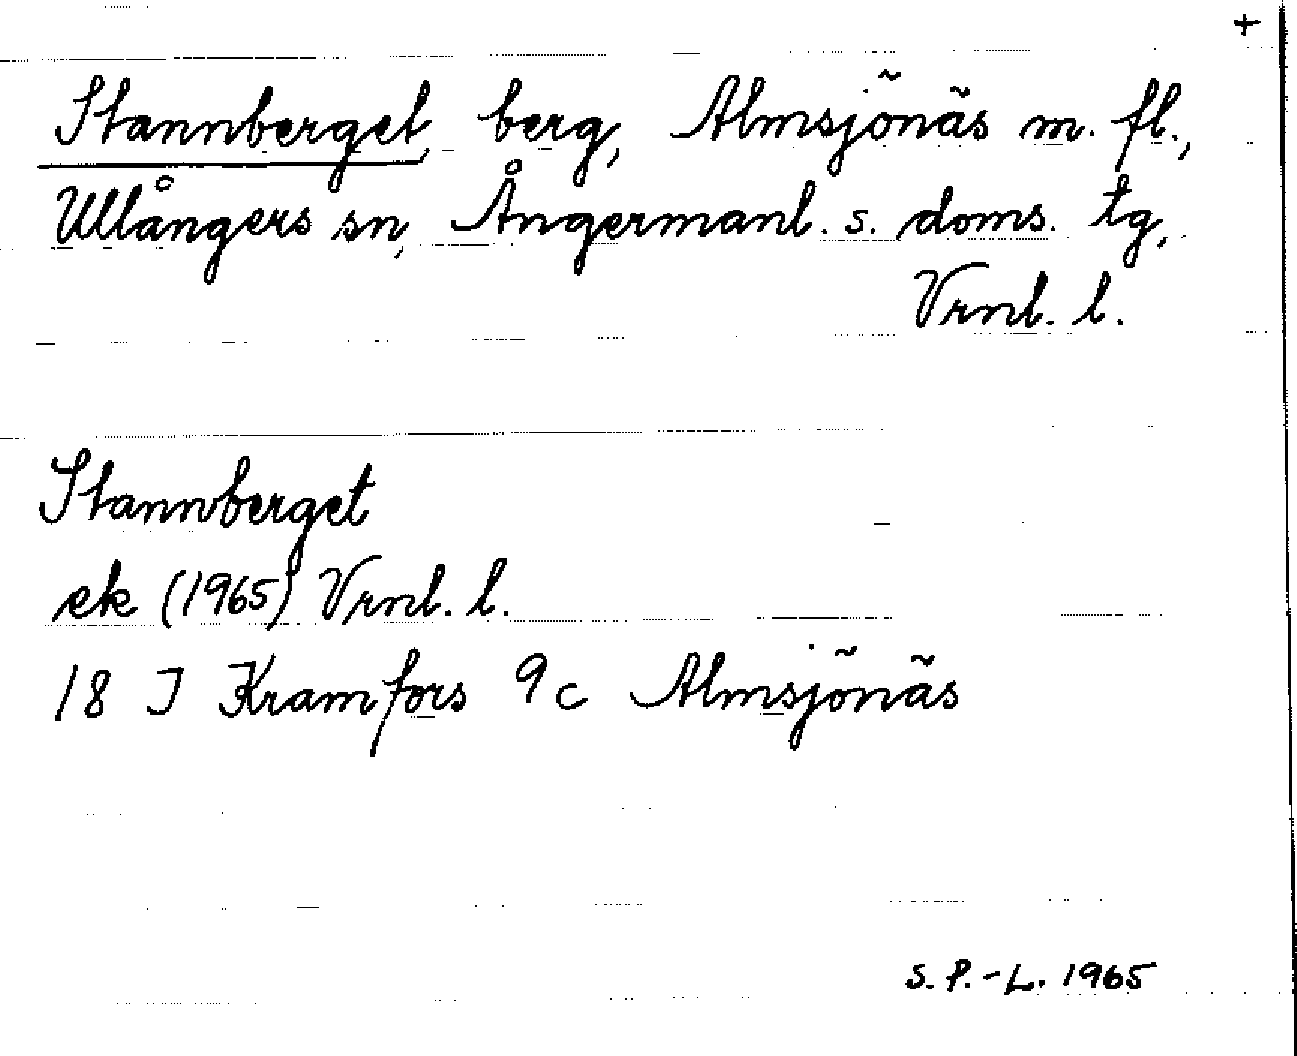 +
Stannberget, berg, Almsjönäs m. fl.,
Ullångers sn, Ångermanl. s. doms. tg,
Vrnl. l.
Stannberget
ek (1965) Vrnl. l.
18 J Kramfors 9c Almsjönäs
S. P.-L. 1965